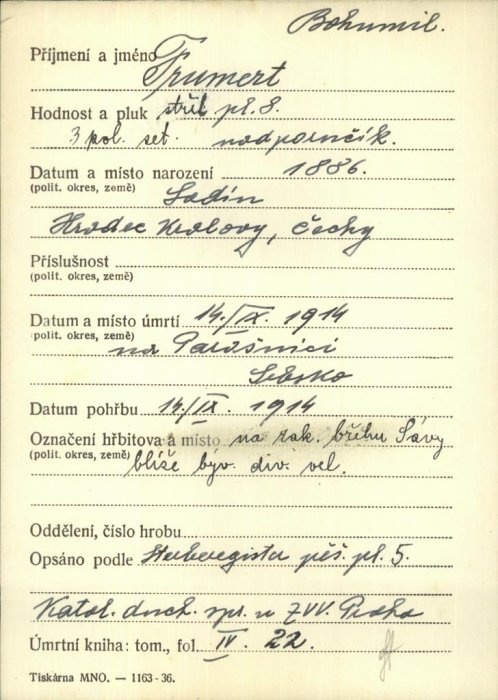 Bohumil.
Příjmení a jméno Trumert
Hodnost a pluk stříl. pl. 8.
3 pol. set. nadporučík.
Datum a místo narození 1886.
(polit. okres, země)
Sadín
Hradec Kralovy, Čechy
Příslušnost
(polit. okres, země)
Datum a místo úmrtí 14./IX. 1914
(polit. okres, země)
na Parašnici
Srbsko
Datum pohřbu 14/IX. 1914
Označení hřbitova a místo na rak. břehu Sávy
(polit. okres, země) blíže býv. div. vel.
Oddělení, číslo hrobu
Opsáno podle Sterberegistru pěš. pl. 5.
Katol. duch. spr. u ZVV. Praha
Úmrtní kniha: tom., fol. IV. 22.
Tiskárna MNO. — 1163-36.